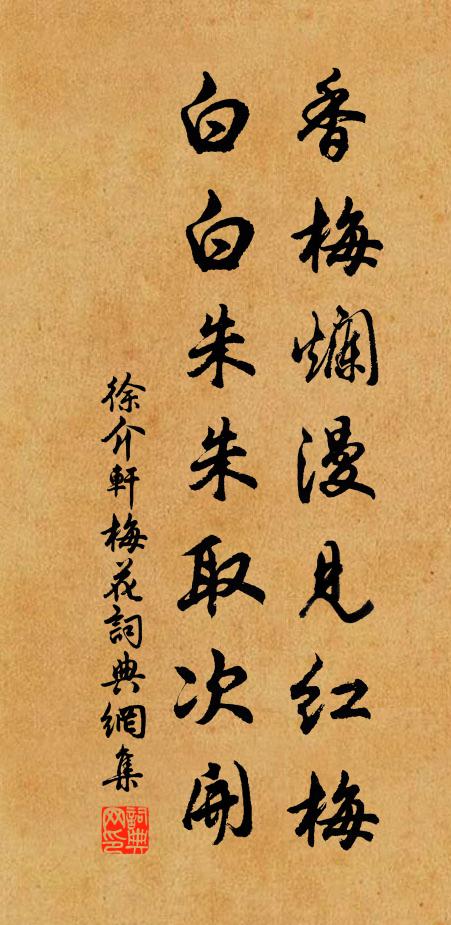 香梅爛漫見红梅
白白朱朱取次開
徐介軒梅花詞典網集
詞典网印